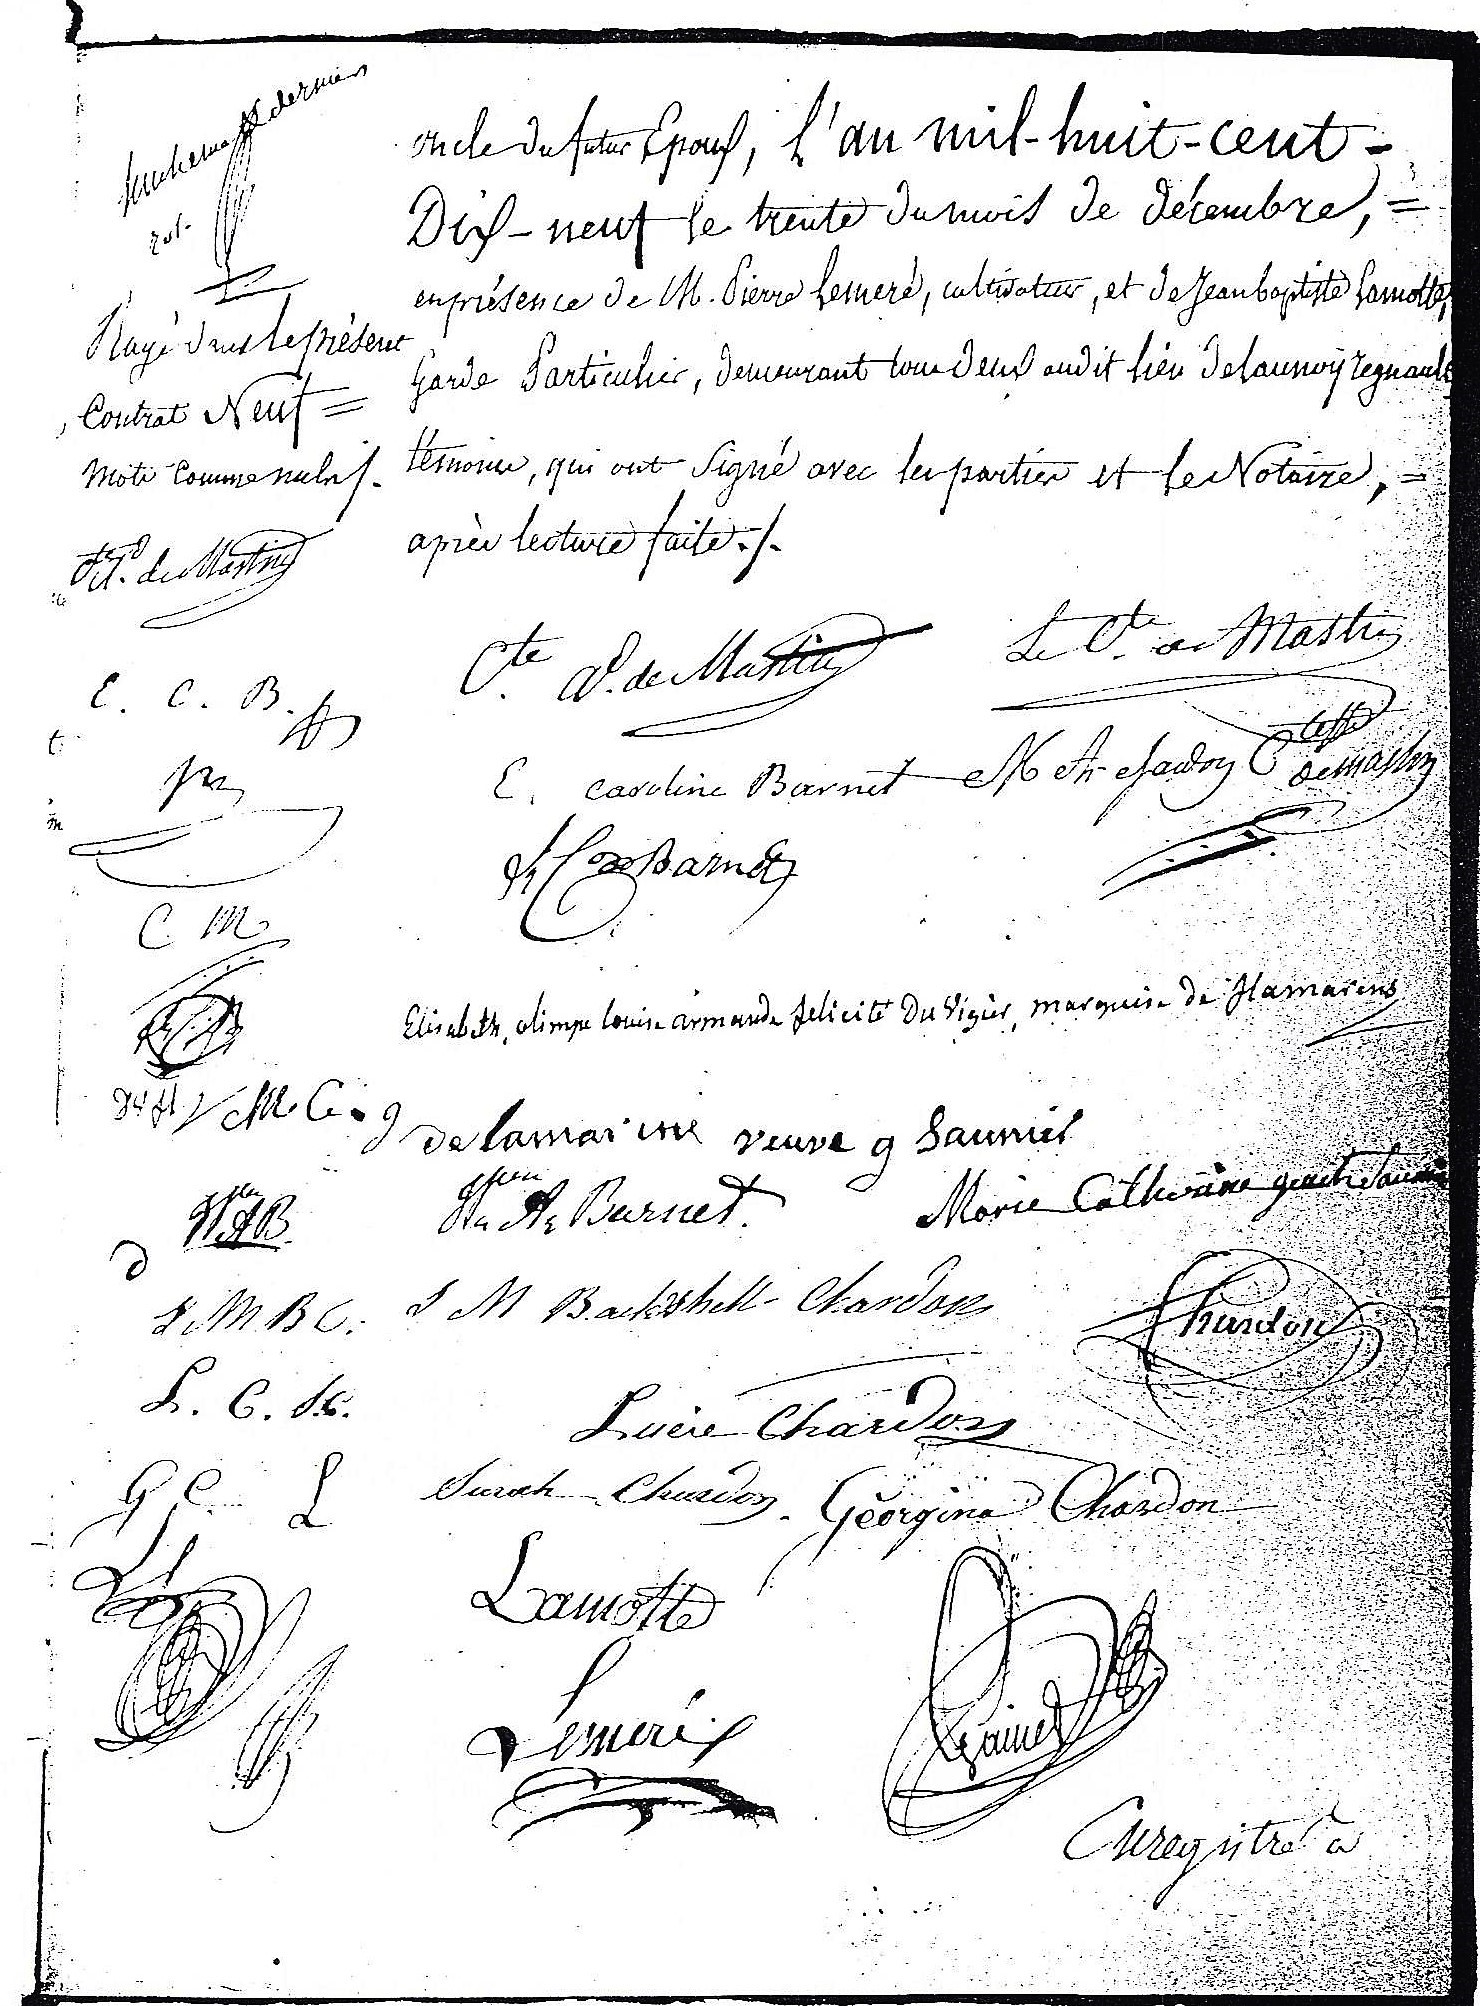 dernier
rol.
oncle du futur Epoux, l'an mil-huit-cent =
Dix-neuf le trente du mois de décembre, =
en présence de M. Pierre Lemeré, cultivateur, et de Jean baptiste Lamotte,
Garde Particulier, demeurant tous deux audit lieu delaunoy regnault
témoins, qui ont Signé avec les parties et le Notaire, =
après lecture faite ./.
Rayé dans le présent
Contrat Neuf =
mots comme nuls /.
de Mastin
Cte Ad. de Mastin
Le Cte de Mastin
E. C. B.
E. Caroline Barnet
Ctesse de Mastin
Barnet
C M
Elisabeth, olimpe louise armande felicité Du Vigier, marquise de flamarens
M. C. g
de lamarine veuve g Saunier
A B
Barnet.
Marie Catherine
S M B C.
S M Backshell Chardon
Chardon
L. C. S.C.
Lucie Chardon
G C L
Sarah Chardon. Géorgina Chardon
Lamotte
Lemeré
Enregistré à